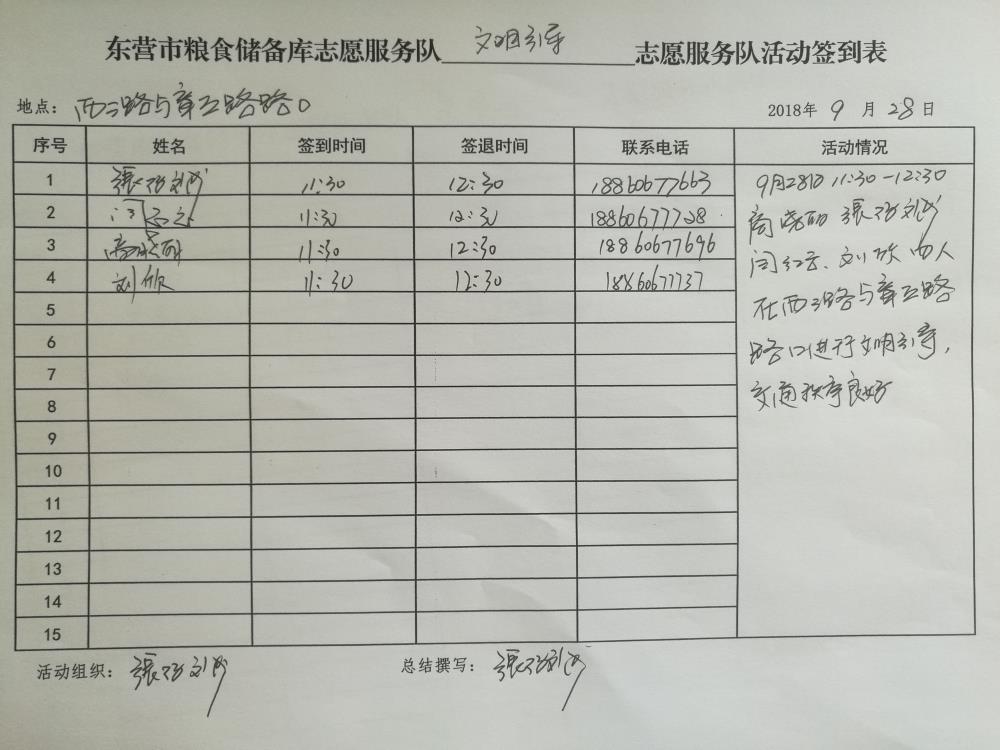 东营市粮食储备库志愿服务队 文明引导 志愿服务队活动签到表
地点: 西二路与章丘路路口 2018年 9 月 28 日
序号 姓名 签到时间 签退时间 联系电话 活动情况
1 11:30 12:30 18860677663
2 11:30 12:30 18860677728
3 11:30 12:30 18860677696
4 刘欣 11:30 12:30 18860677737
5
6
7
8
9
10
11
12
13
14
15
9月28日 11:30-12:30
商晓丽
闫红云、刘欣四人
在西二路与章丘路
路口进行文明引导,
交通秩序良好
活动组织:
总结撰写: